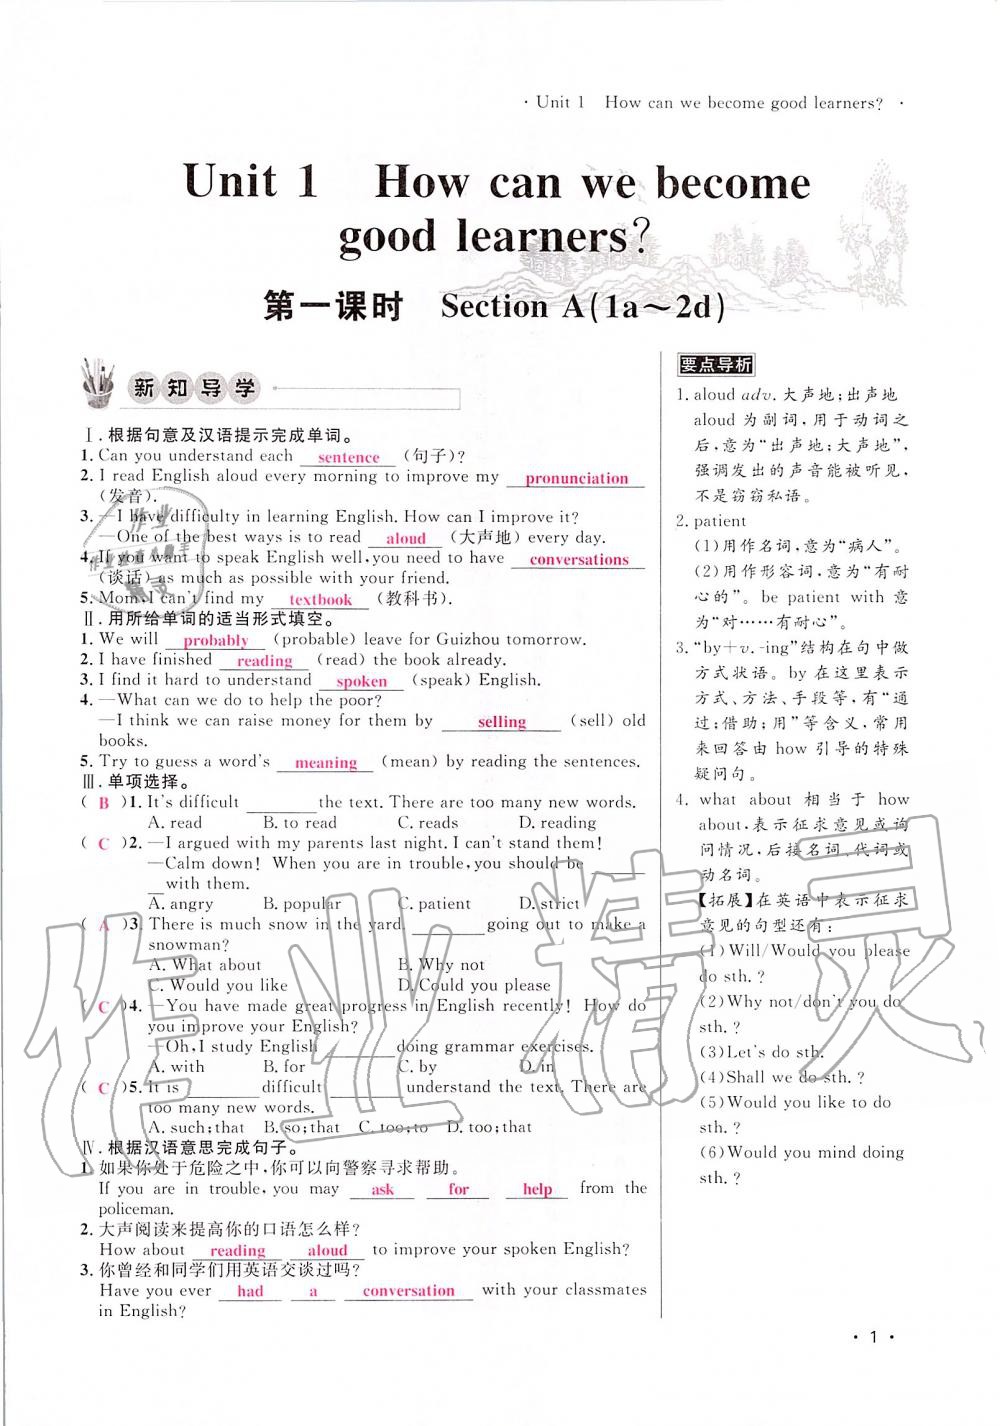 · Unit 1 How can we become good learners? ·
Unit 1 How can we become
good learners?
第一课时 Section A(1a～2d)
新知导学
Ⅰ.根据句意及汉语提示完成单词。
1. Can you understand each sentence (句子)?
2. I read English aloud every morning to improve my pronunciation
(发音).
3. —I have difficulty in learning English. How can I improve it?
—One of the best ways is to read aloud (大声地) every day.
4. If you want to speak English well, you need to have conversations
(谈话) as much as possible with your friend.
5. Mom, I can't find my textbook (教科书).
Ⅱ.用所给单词的适当形式填空。
1. We will probably (probable) leave for Guizhou tomorrow.
2. I have finished reading (read) the book already.
3. I find it hard to understand spoken (speak) English.
4. —What can we do to help the poor?
—I think we can raise money for them by selling (sell) old
books.
5. Try to guess a word's meaning (mean) by reading the sentences.
Ⅲ.单项选择。
( B )1. It's difficult ______ the text. There are too many new words.
A. read B. to read C. reads D. reading
( C )2. —I argued with my parents last night. I can't stand them!
—Calm down! When you are in trouble, you should be ____
__with them.
A. angry B. popular C. patient D. strict
( A )3. There is much snow in the yard. ______ going out to make a
snowman?
A. What about B. Why not
C. Would you like D. Could you please
( C )4. —You have made great progress in English recently! How do
you improve your English?
—Oh, I study English ______ doing grammar exercises.
A. with B. for C. by D. in
( C )5. It is ______ difficult ______ understand the text. There are
too many new words.
A. such; that B. so; that C. too; to D. too; that
Ⅳ.根据汉语意思完成句子。
1. 如果你处于危险之中,你可以向警察寻求帮助。
If you are in trouble, you may ask for help from the
policeman.
2. 大声阅读来提高你的口语怎么样?
How about reading aloud to improve your spoken English?
3. 你曾经和同学们用英语交谈过吗?
Have you ever had a conversation with your classmates
in English?
要点导析
1. aloud adv. 大声地;出声地
aloud 为副词,用于动词之
后,意为“出声地;大声地”,
强调发出的声音能被听见,
不是窃窃私语。
2. patient
(1)用作名词,意为“病人”。
(2)用作形容词,意为“有耐
心的”。be patient with 意
为“对……有耐心”。
3. “by+v.-ing”结构在句中做
方式状语。by 在这里表示
方式、方法、手段等,有“通
过;借助;用”等含义,常用
来回答由 how 引导的特殊
疑问句。
4. what about 相当于 how
about,表示征求意见或询
问情况,后接名词、代词或
动名词。
【拓展】在英语中表示征求
意见的句型还有:
(1)Will/Would you please
do sth.?
(2)Why not/don't you do
sth.?
(3)Let's do sth.
(4)Shall we do sth.?
(5)Would you like to do
sth.?
(6)Would you mind doing
sth.?
· 1 ·
作业精灵